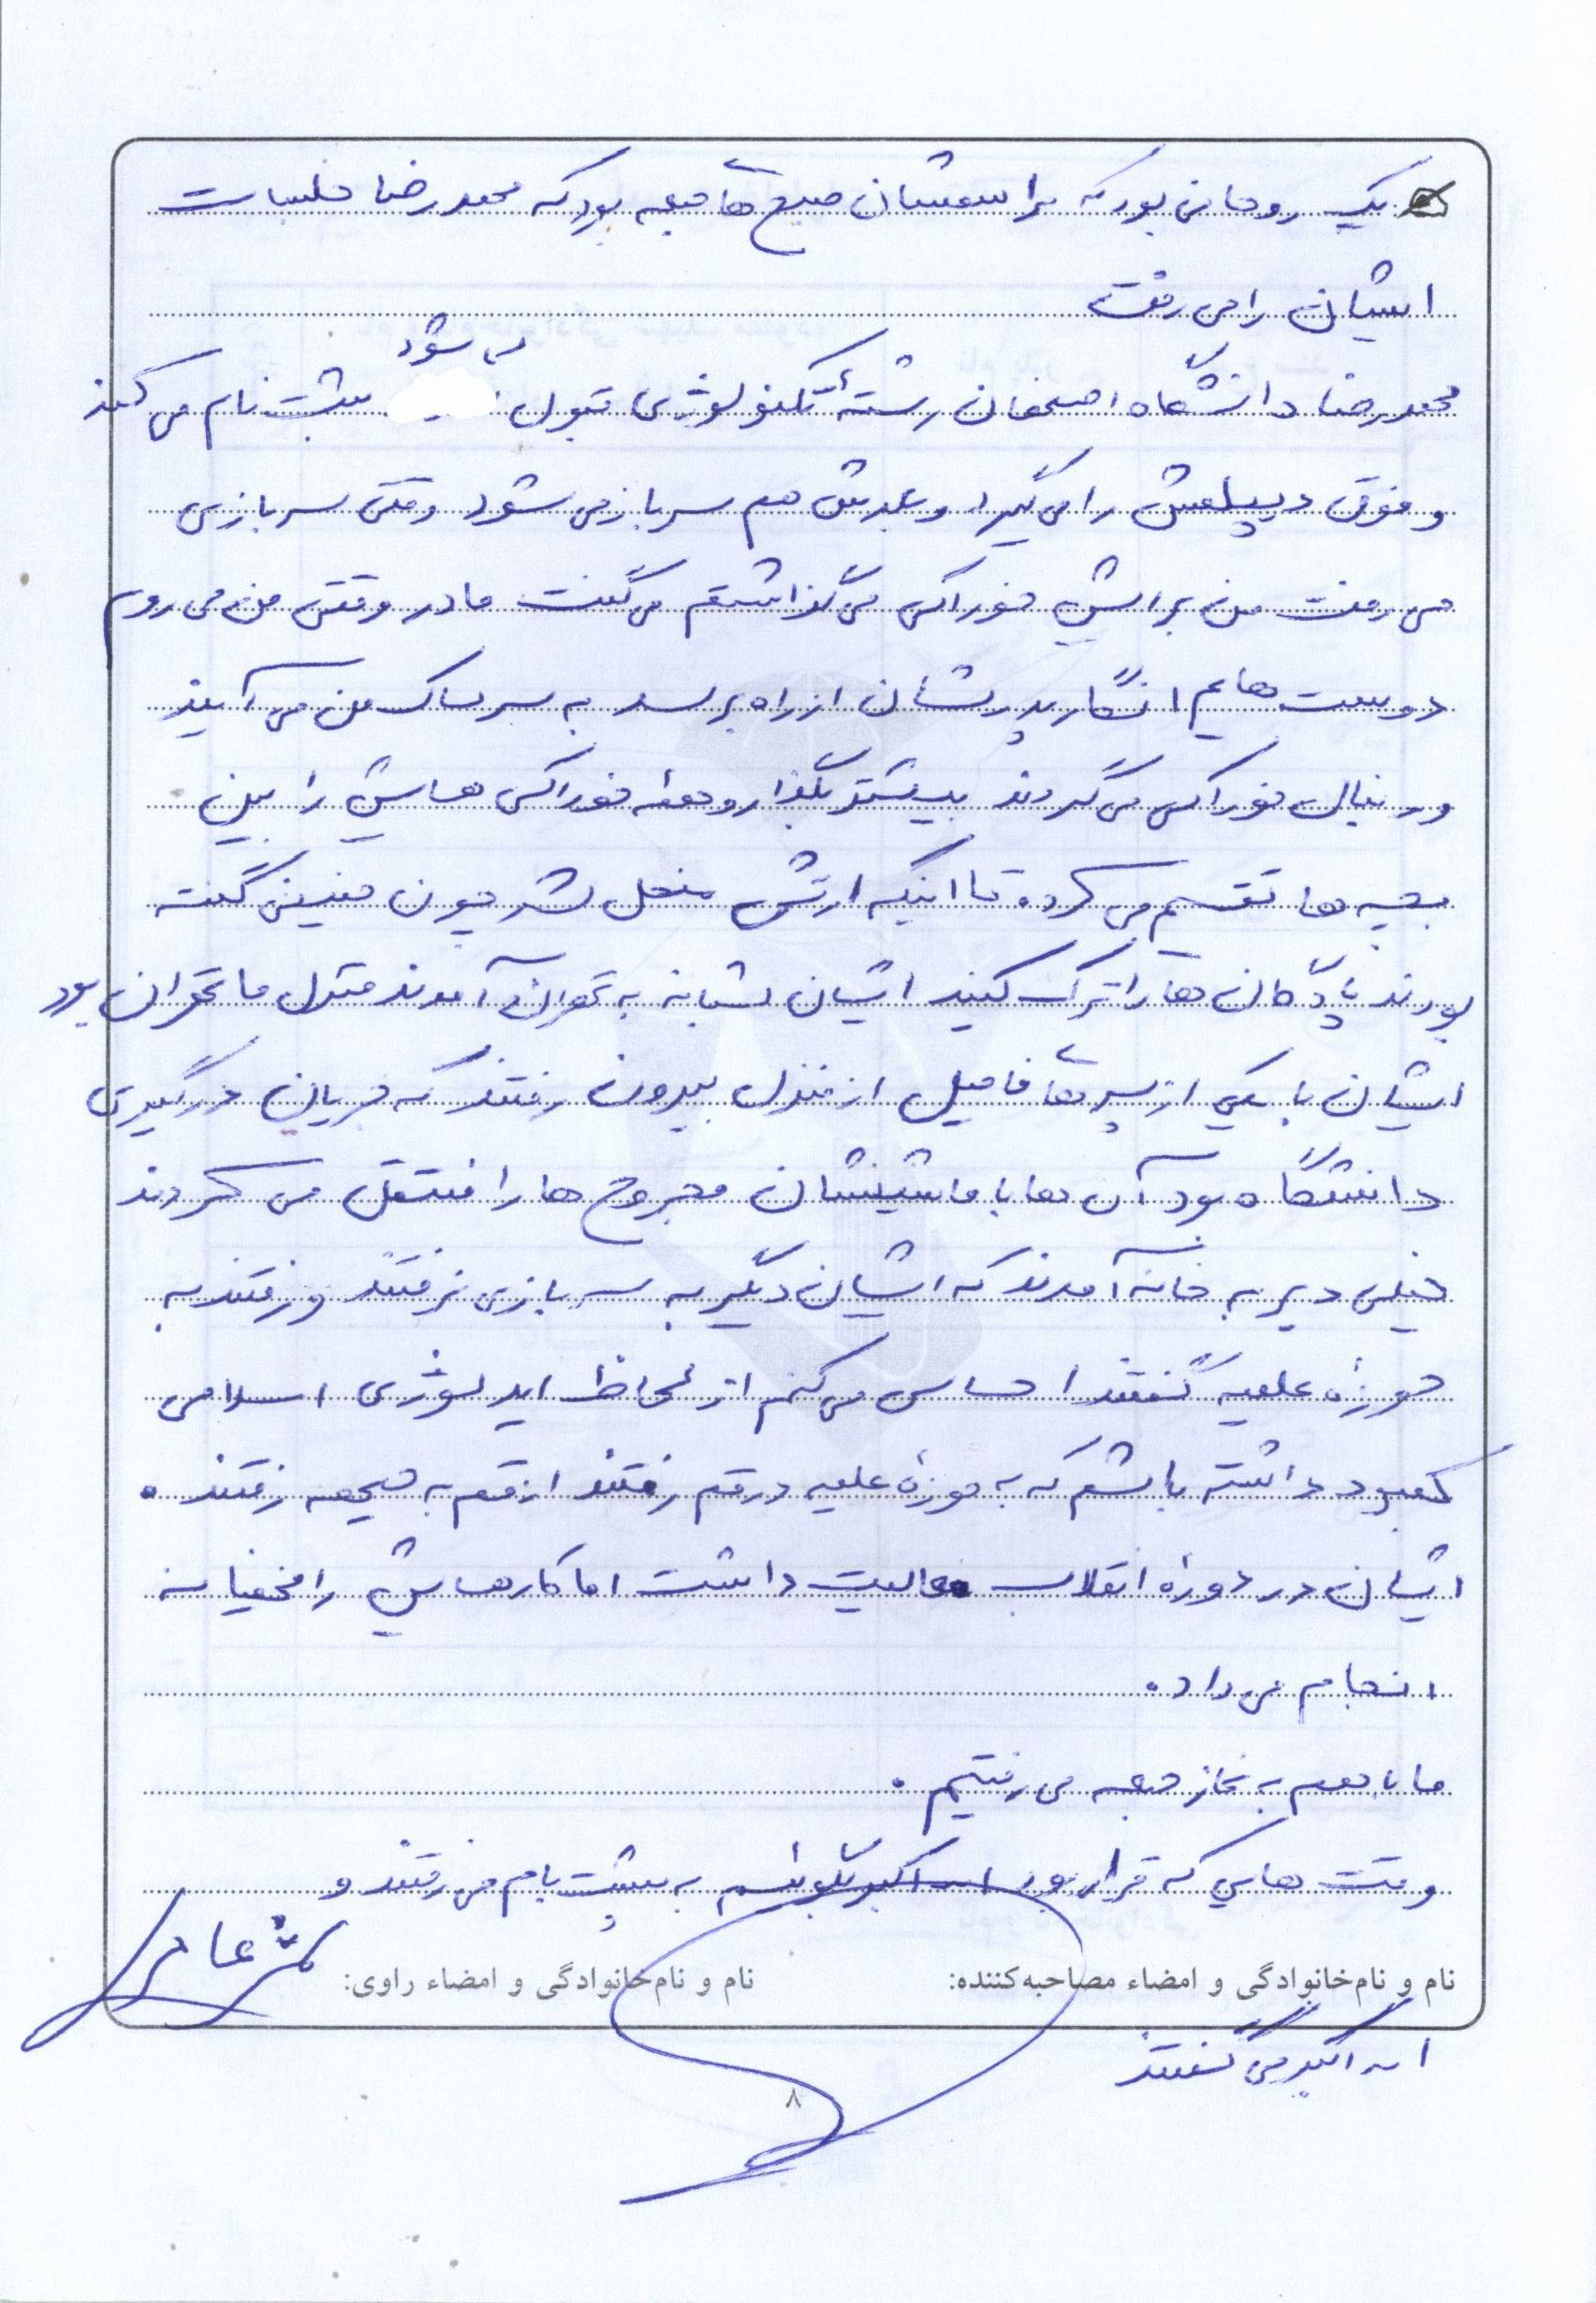 یک روحانی بود که مراسمشان صبح های جمعه بود که محمدرضا جلسات
ایشان را می رفت
می شود
محمدرضا دانشگاه اصفهان رشتهٔ تکنولوژی قبول ثبت نام می کند
و فوق دیپلمش را می گیرد و بعدش هم سرباز می شود وقتی سربازی
می رفت من برایش خوراکی می گذاشتم می گفت مادر وقتی من می روم
دوست هایم انگار پدرشان از راه برسد به سر ساک من می آیند
و دنبال خوراکی می گردند بیشتر بگذار و همه خوراکی هایش را بین
بچه ها تقسیم می کرد. تا اینکه ارتش منحل شد چون خمینی گفته
بودند پادگان ها را ترک کنید ایشان شبانه به تهران آمدند منزل ما تهران بود
ایشان با یکی از پسرهای فامیل از منزل بیرون رفتند که جریان درگیری
دانشگاه بود آن ها با ماشینشان مجروح ها را منتقل می کردند
خیلی دیر به خانه آمدند که ایشان دیگر به سربازی نرفتند و رفتند به
حوزهٔ علمیه گفتند احساس می کنم از لحاظ ایدلوژی اسلامی
کمبود داشته باشم که به حوزهٔ علمیه در قم رفتند از قم به جبهه رفتند.
ایشان در دورهٔ انقلاب فعالیت داشت اما کارهایش را مخفیانه
انجام می داد.
ما با هم به نماز جمعه می رفتیم.
وقت هایی که قرار بود الله اکبر بگویند به پشت بام می رفتند و
نام و نام‌خانوادگی و امضاء مصاحبه‌کننده:
نام و نام‌خانوادگی و امضاء راوی:
الله اکبر می گفتند
۸